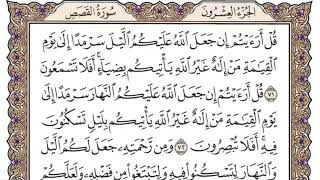 الجزء العشرون سورة القصص
قُلْ أَرَءَيْتُمْ إِن جَعَلَ ٱللَّهُ عَلَيْكُمُ ٱلَّيْلَ سَرْمَدًا إِلَىٰ يَوْمِ
ٱلْقِيَٰمَةِ مَنْ إِلَٰهٌ غَيْرُ ٱللَّهِ يَأْتِيكُم بِضِيَآءٍ ۖ أَفَلَا تَسْمَعُونَ
٧١ قُلْ أَرَءَيْتُمْ إِن جَعَلَ ٱللَّهُ عَلَيْكُمُ ٱلنَّهَارَ سَرْمَدًا إِلَىٰ
يَوْمِ ٱلْقِيَٰمَةِ مَنْ إِلَٰهٌ غَيْرُ ٱللَّهِ يَأْتِيكُم بِلَيْلٍ تَسْكُنُونَ
فِيهِ ۖ أَفَلَا تُبْصِرُونَ ٧٢ وَمِن رَّحْمَتِهِۦ جَعَلَ لَكُمُ ٱلَّيْلَ
وَٱلنَّهَارَ لِتَسْكُنُوا۟ فِيهِ وَلِتَبْتَغُوا۟ مِن فَضْلِهِۦ وَلَعَلَّكُمْ